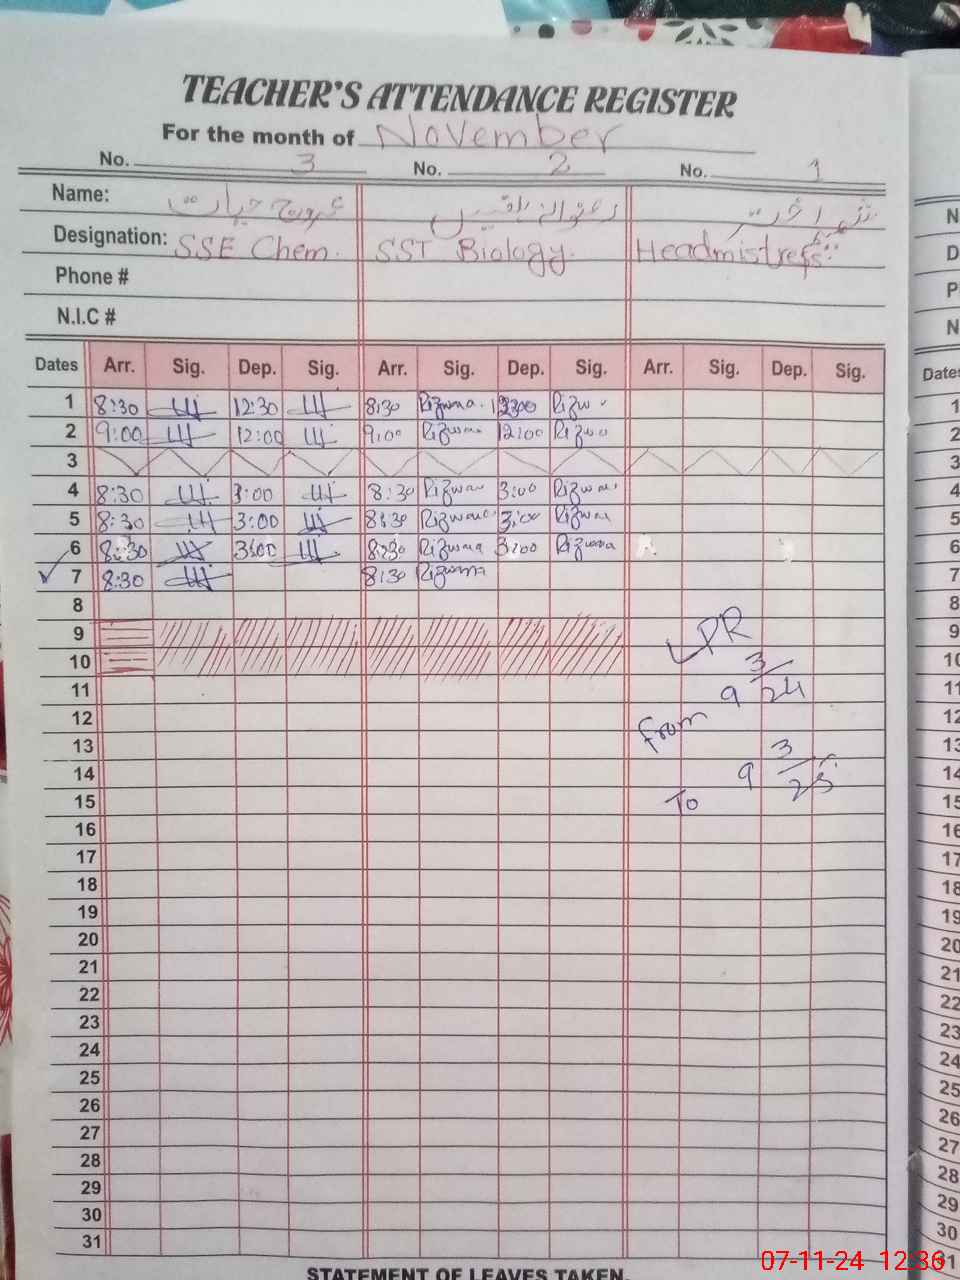 TEACHER'S ATTENDANCE REGISTER
For the month of November
No. 3 No. 2 No. 1
Name:
Designation: SSE Chem. SST Biology. Headmistress
Phone #
N.I.C #
Dates Arr. Sig. Dep. Sig. Arr. Sig. Dep. Sig. Arr. Sig. Dep. Sig.
1 8:30 12:30 8:30 Rizwana
2 9:00 12:00 9:00 Rizwana 12:00
3
4 8:30 3:00 8:30 Rizwana 3:00 Rizwana
5 8:30 3:00 8:30 Rizwana 3:00 Rizwana
6 8:30 3:00 8:30 Rizwana 3:00 Rizwana
7 8:30 8:30 Rizwana
8
9
10 LPR
11 from 9 3/24
12
13
14 To 9 3/25
15
16
17
18
19
20
21
22
23
24
25
26
27
28
29
30
31
STATEMENT OF LEAVES TAKEN.
N
D
P
N
Dates
1
2
3
4
5
6
7
8
9
10
11
12
13
14
15
16
17
18
19
20
21
22
23
24
25
26
27
28
29
30
31
07-11-24 12:36